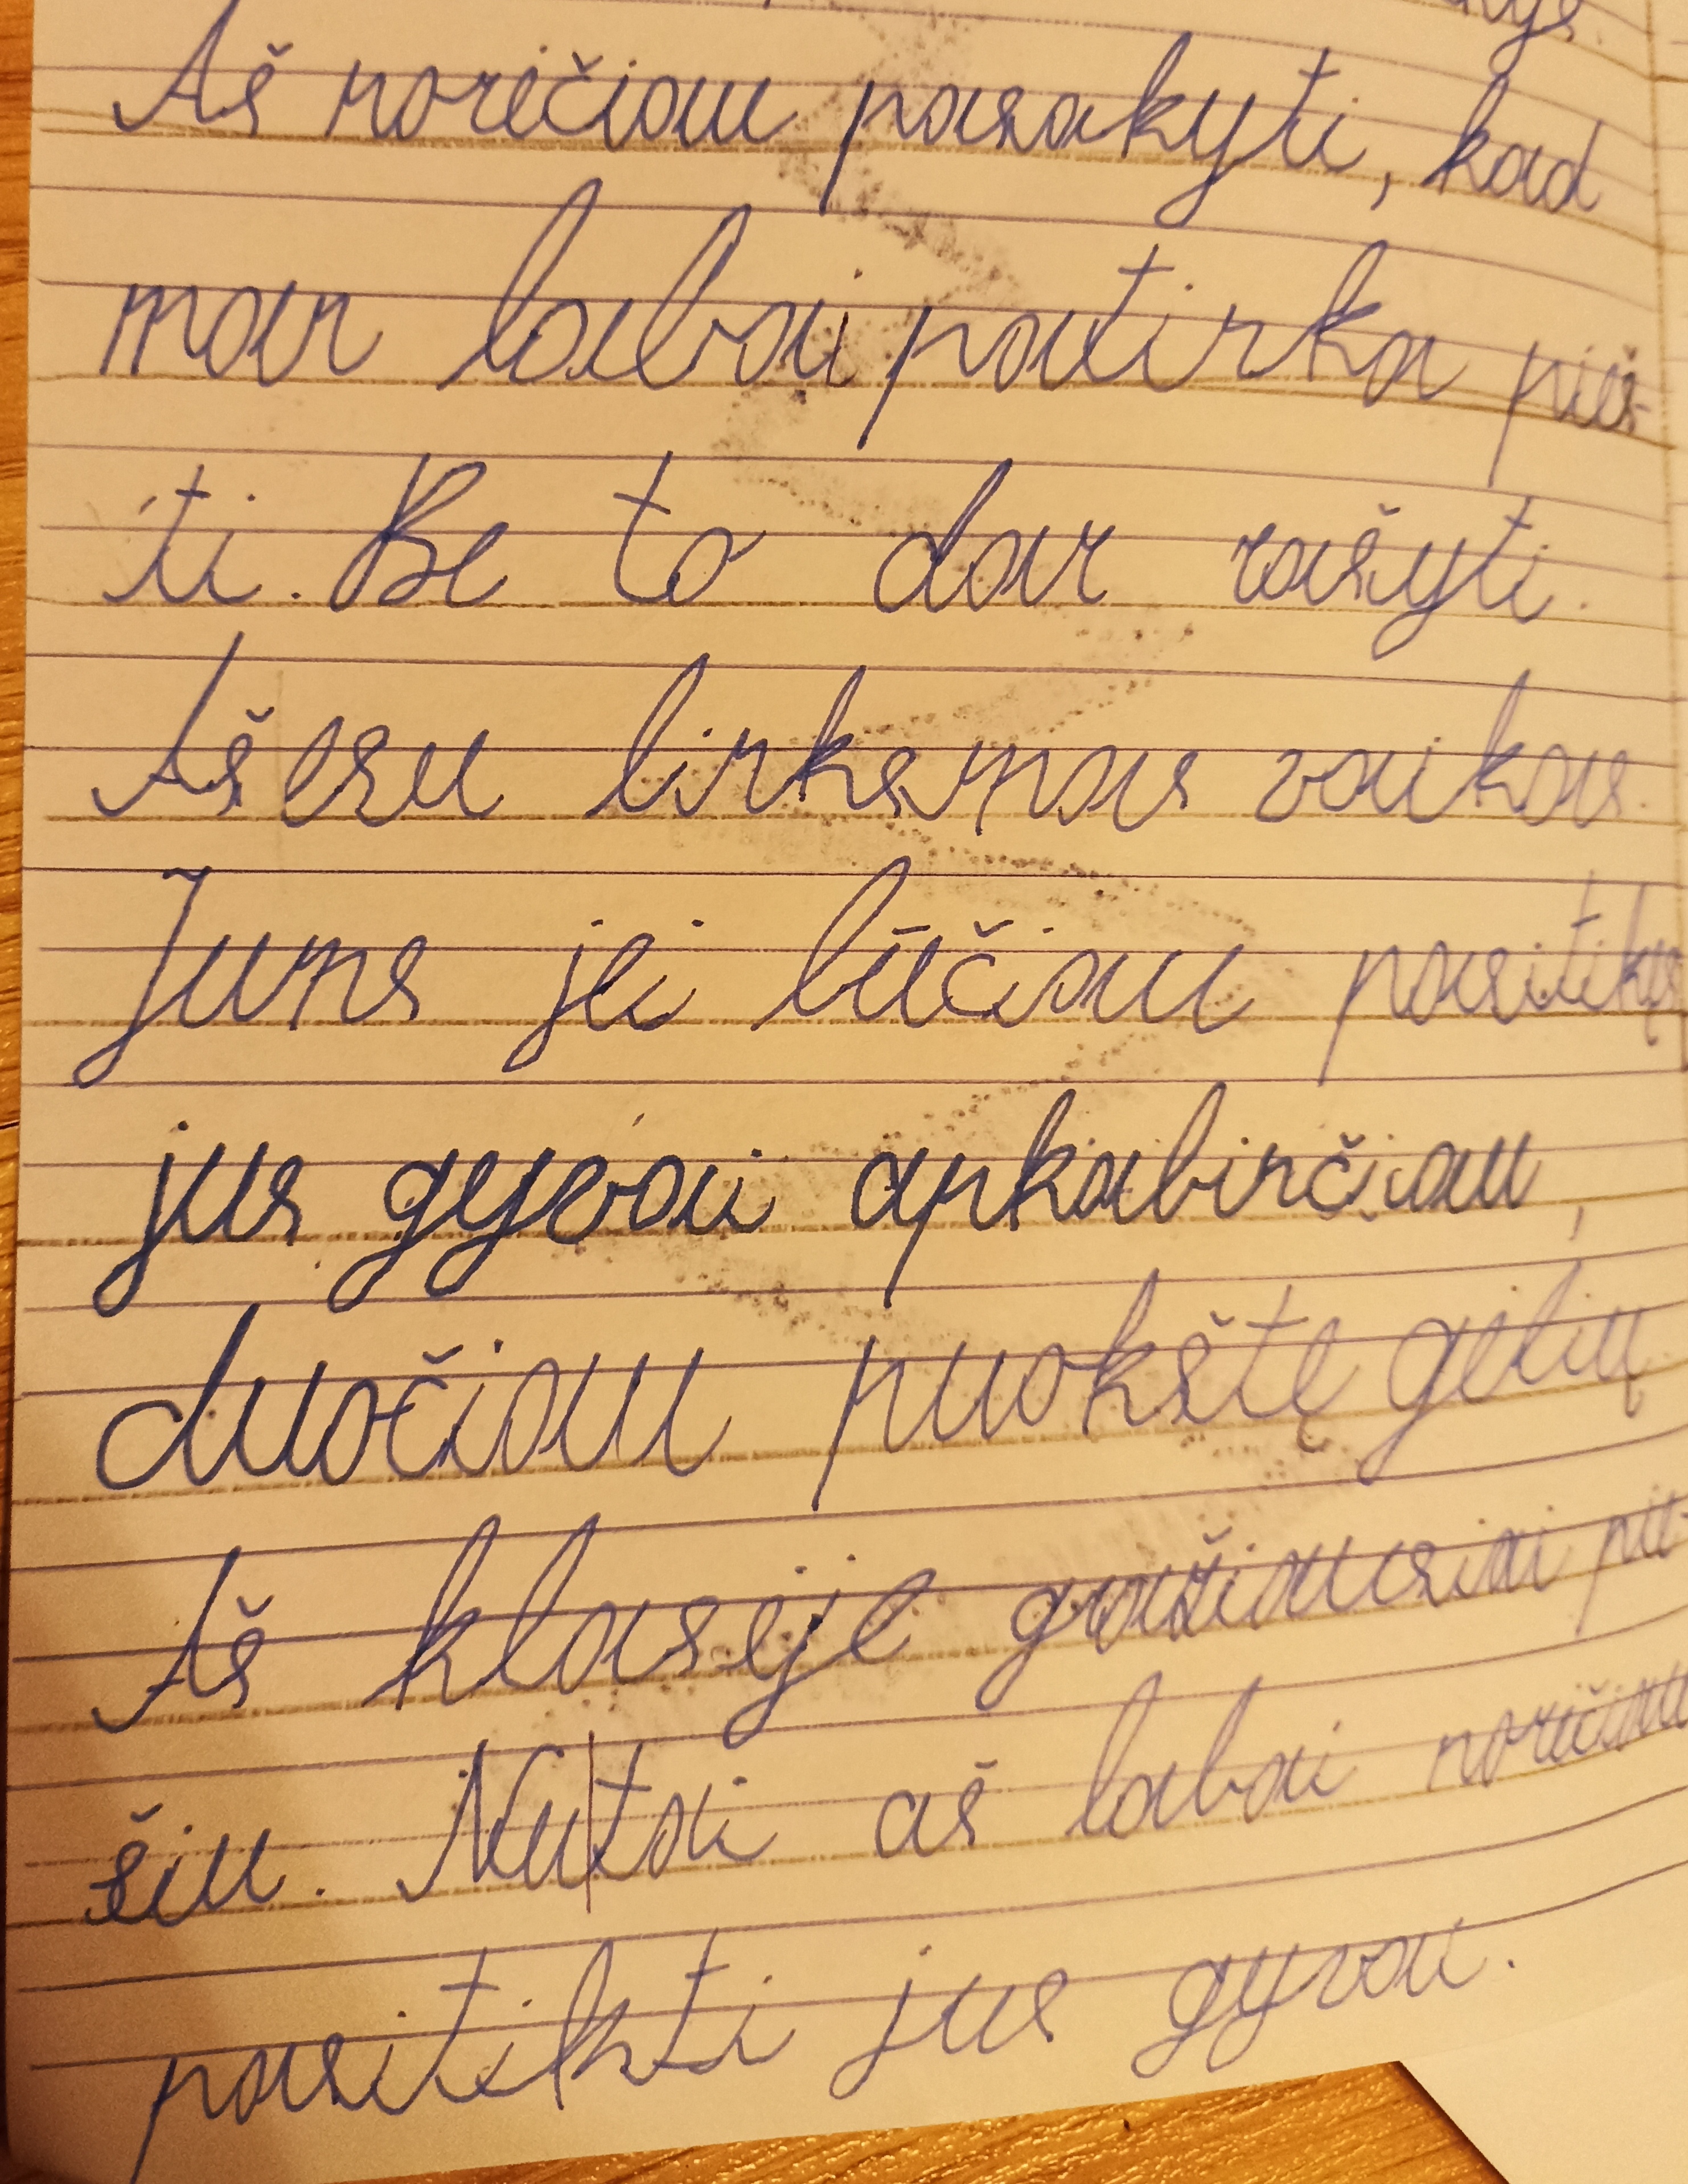 Aš norėčiau pasakyti, kad
man labai patinka pieš-
ti. Be to dar rašyti.
Aš esu linksmas vaikas.
Jums jei būčiau pasitikęs
jus gyvai apkabinčiau,
duočiau puokštę gėlių
Aš klasėje gražiausiai pie-
šiu. Nu tai aš labai norėčiau
pasitikti jus gyvai.